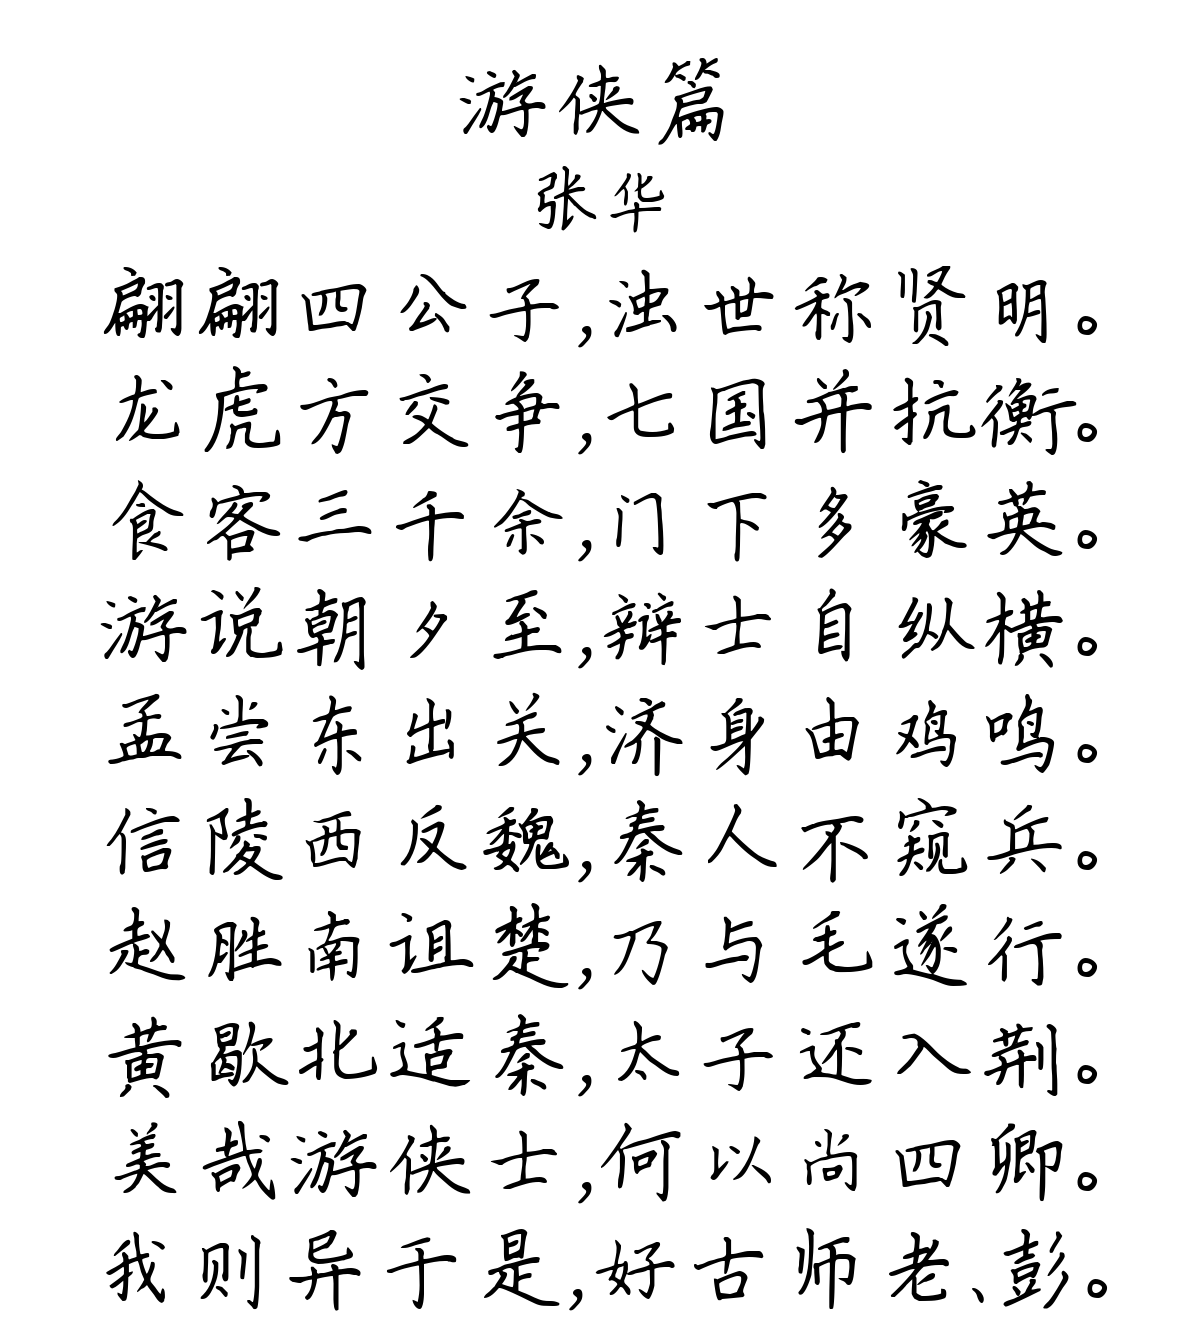 游侠篇
张华
翩翩四公子,浊世称贤明。
龙虎方交争,七国并抗衡。
食客三千余,门下多豪英。
游说朝夕至,辩士自纵横。
孟尝东出关,济身由鸡鸣。
信陵西反魏,秦人不窥兵。
赵胜南诅楚,乃与毛遂行。
黄歇北适秦,太子还入荆。
美哉游侠士,何以尚四卿。
我则异于是,好古师老、彭。